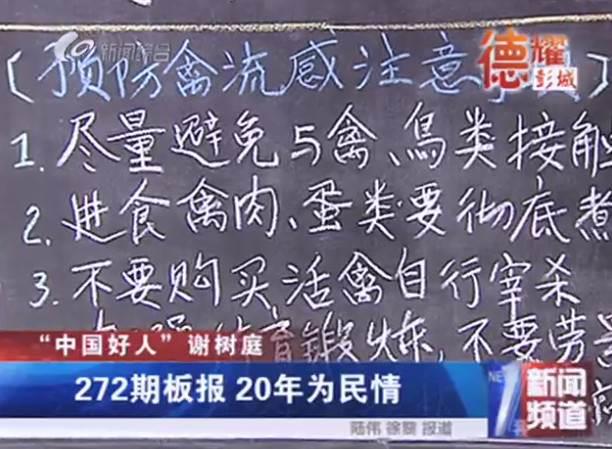 新闻综合
德耀
彭城
（预防禽流感注意
1. 尽量避免与禽、鳥类接触
2. 进食禽肉、蛋类要彻底煮
3. 不要购买活禽自行宰杀
育鍛炼，不要劳
“中国好人”谢树庭
272期板报 20年为民情
新闻
频道
陆伟 徐 报道